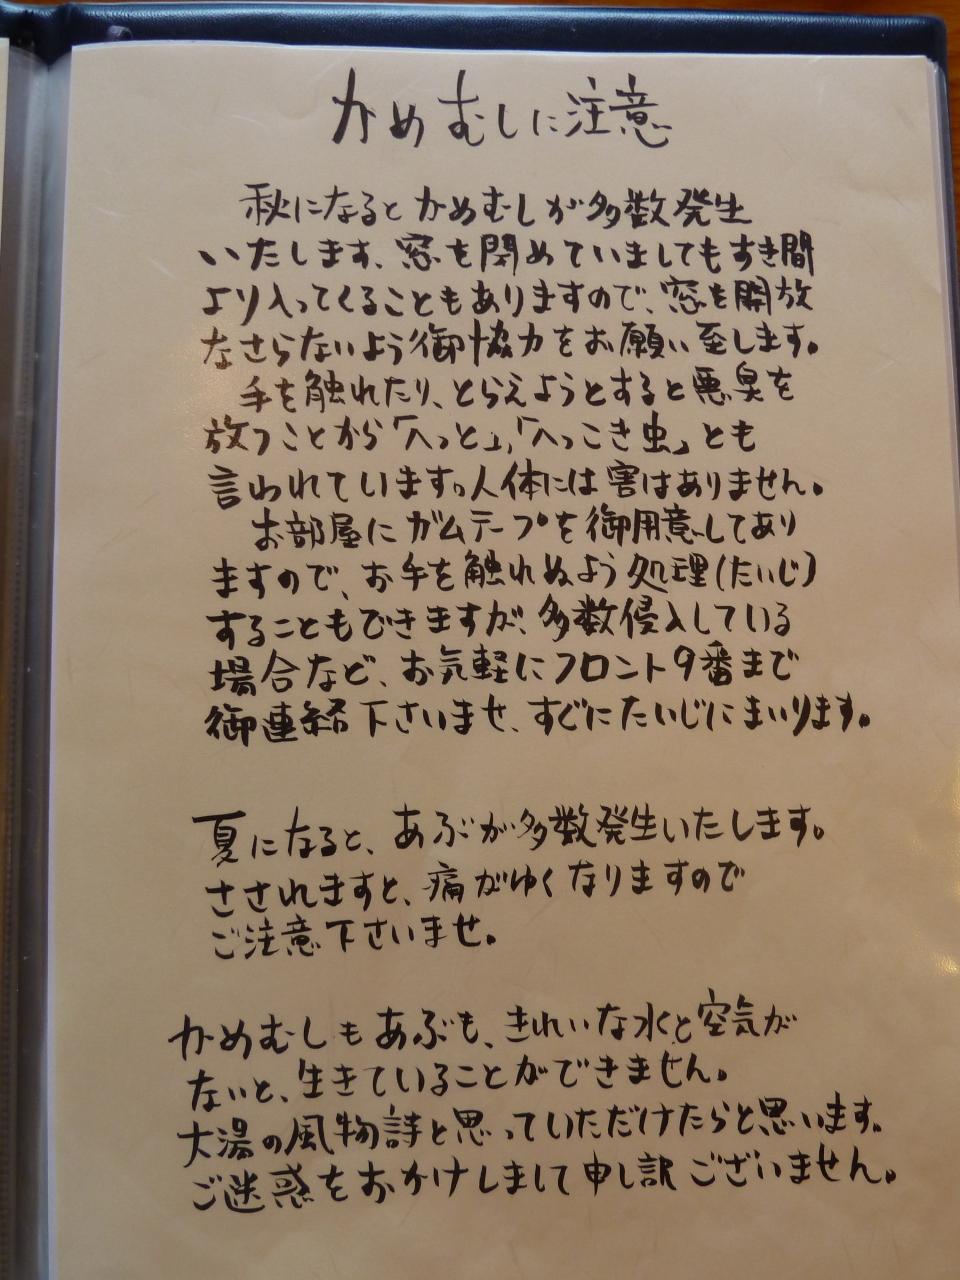 かめむしに注意
秋になるとかめむしが多数発生
いたします、窓を閉めていましてもすき間
より入ってくることもありますので、窓を開放
なさらないよう御協力をお願い至します。
手を触れたり、とらえようとすると悪臭を
放つことから「へっと」,「へっこき虫」とも
言われています。人体には害はありません。
お部屋にガムテープを御用意してあり
ますので、お手を触れぬよう処理(たいじ)
することもできますが、多数侵入している
場合など、お気軽にフロント9番まで
御連絡下さいませ、すぐにたいじにまいります。
夏になると、あぶが多数発生いたします。
さされますと、痛がゆくなりますので
ご注意下さいませ。
かめむしもあぶも、きれいな水と空気が
ないと、生きていることができません。
大湯の風物詩と思っていただけたらと思います。
ご迷惑をおかけしまして申し訳ございません。